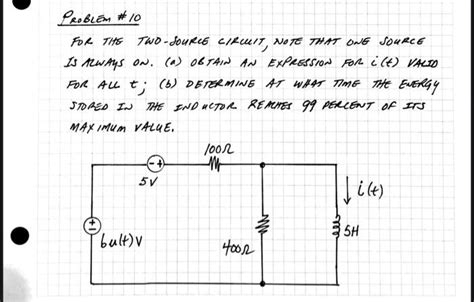 PROBLEM #10
FOR THE TWO-SOURCE CIRCUIT, NOTE THAT ONE SOURCE
IS ALWAYS ON. (a) OBTAIN AN EXPRESSION FOR i(t) VALID
FOR ALL t; (b) DETERMINE AT WHAT TIME THE ENERGY
STORED IN THE INDUCTOR REACHES 99 PERCENT OF ITS
MAXIMUM VALUE.
100Ω
- +
5V
i(t)
+
6u(t)V
400Ω
5H